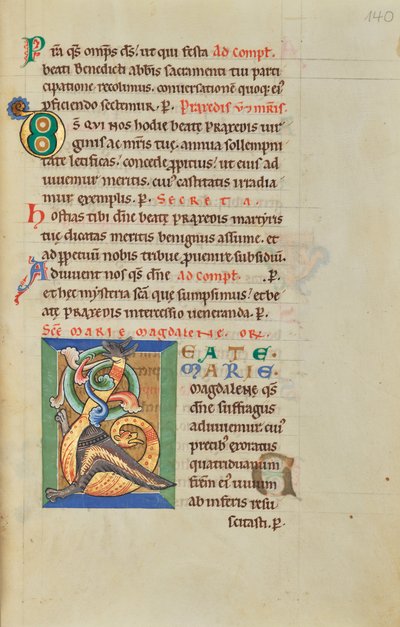 140
Pr̄a q̄s om̄ps d̄s ut qui festa Ad Compt̄.
beati Benedicti abb̄is sacramenti tui parti
cipatione recolimus. conversationem quoq; ei'
pficiendo sectemur. P. Praxedis v̄ & m̄ris
DS QUI NOS hodie beatę PRAXEDIS vir
ginis ac m̄ris tuę. annua sollempni
tate letificas. concede propitius. ut eius ad
iuvemur meritis. cui' castitatis irradia
mur exemplis. P. SECRETA.
Hostias tibi dn̄e beatę PRAXEDIS martyris
tuę dicatas meritis benignus assume. et
ad ppetuum nobis tribue pvenire subsidiū.
Adiuvent nos q̄s dn̄e Ad Compt̄. P.
et hec mysteria sc̄a que sumpsimus. et be
atę PRAXEDIS intercessio veneranda. P.
SC̄E MARIE MAGDALENE. OR̄.
BEATE
MARIE
MAGDALENE q̄s
dn̄e suffragiis
adiuvemur. cui'
precib; exoratus
quatriduanum
frēm ei' vivum
ab inferis resu
scitasti. P.